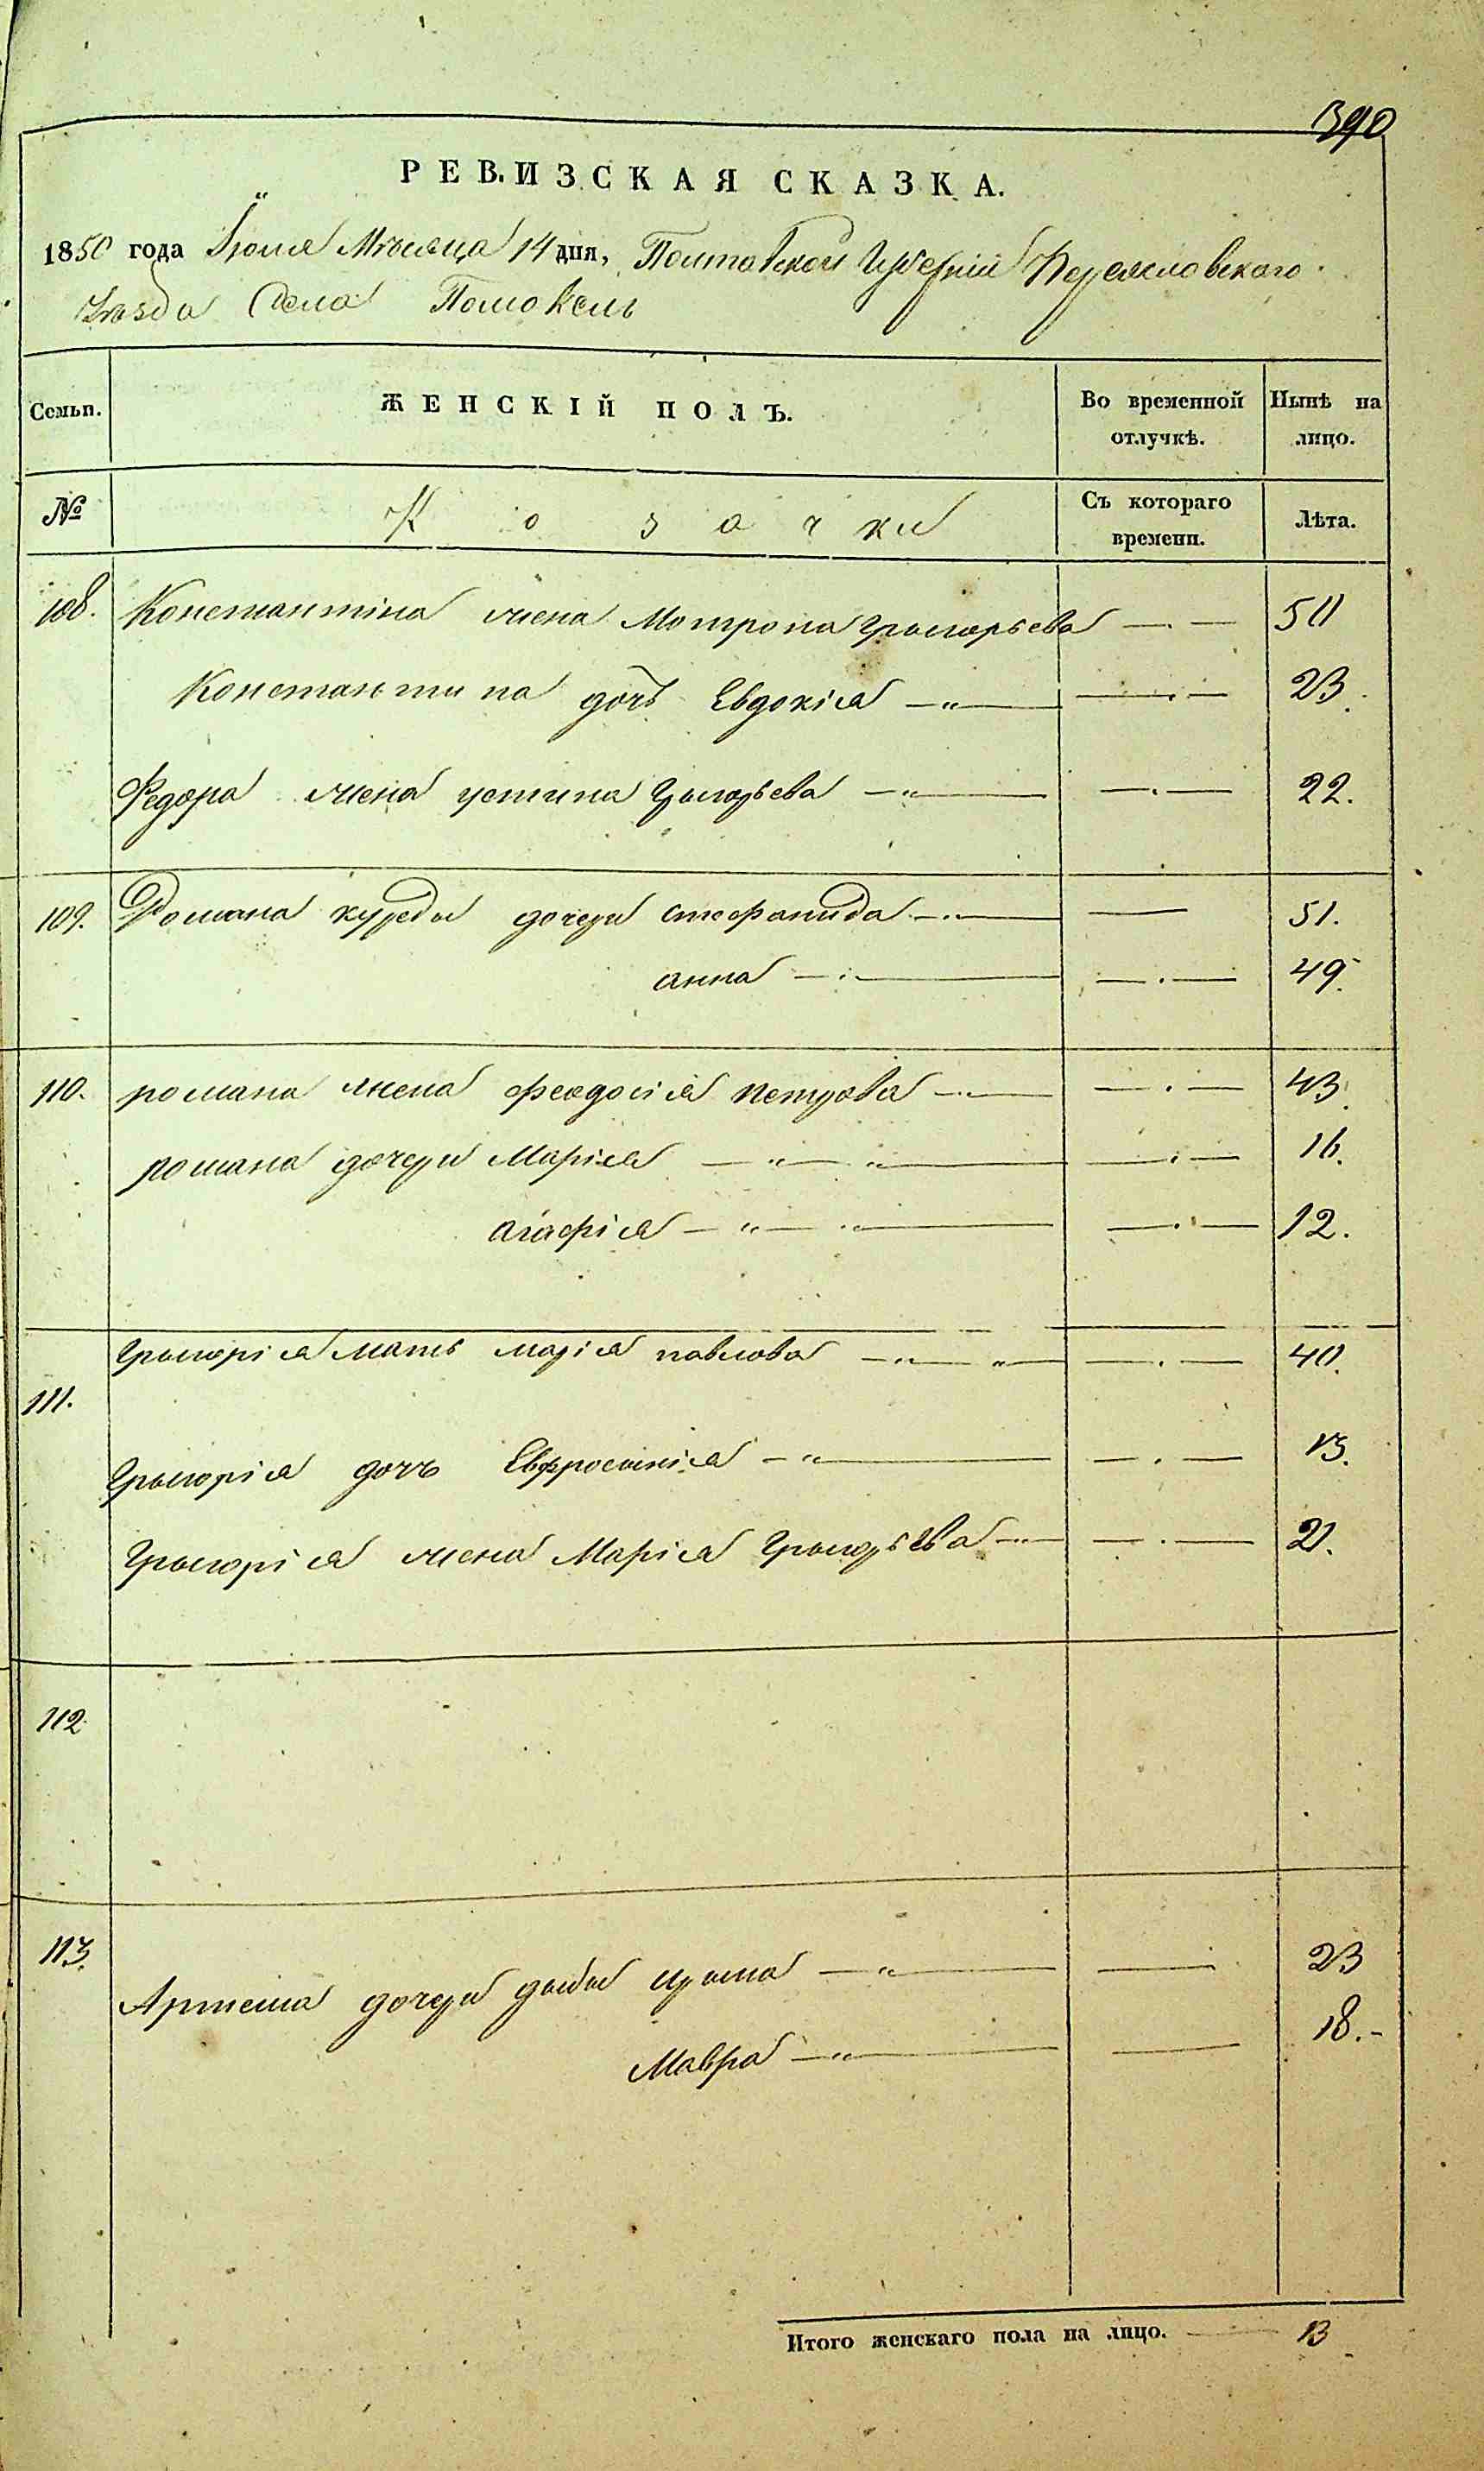 390
РЕВИЗСКАЯ СКАЗКА.
1850 года Іюля Мѣсяца 14 дня, Полтавской Губерніи Переяславского
Уѣзда Села Помокель
Семьи. ЖЕНСКІЙ ПОЛЪ. Во временной отлучкѣ. Нынѣ на лицо.
№ Козачки Съ котораго времени. Лѣта.
108. Константина жена Мотрона Григорьева — . — 50
Константина дочь Евдокія — „ — — . — 23.
Федора жена Устина Григорьева — „ — — . — 22.
109. Романа дочери Стефанида — . — — 51.
анна — . — — . — 49.
110. романа жена Феодосія Петрова — . — — . — 43.
романа дочери Марія — „ — „ — — . — 16.
агафія — „ — „ — — . — 12.
111. Григорія мать марія павлова — „ — „ — — . — 40.
Григорія дочь Евфросинія — „ — — . — 13.
Григорія жена Марія Григорьева — „ — — . — 21.
112
113. Артема дочери ирина — „ — — 23
Мавра — „ — — 18. -
Итого женскаго пола на лицо. — 13